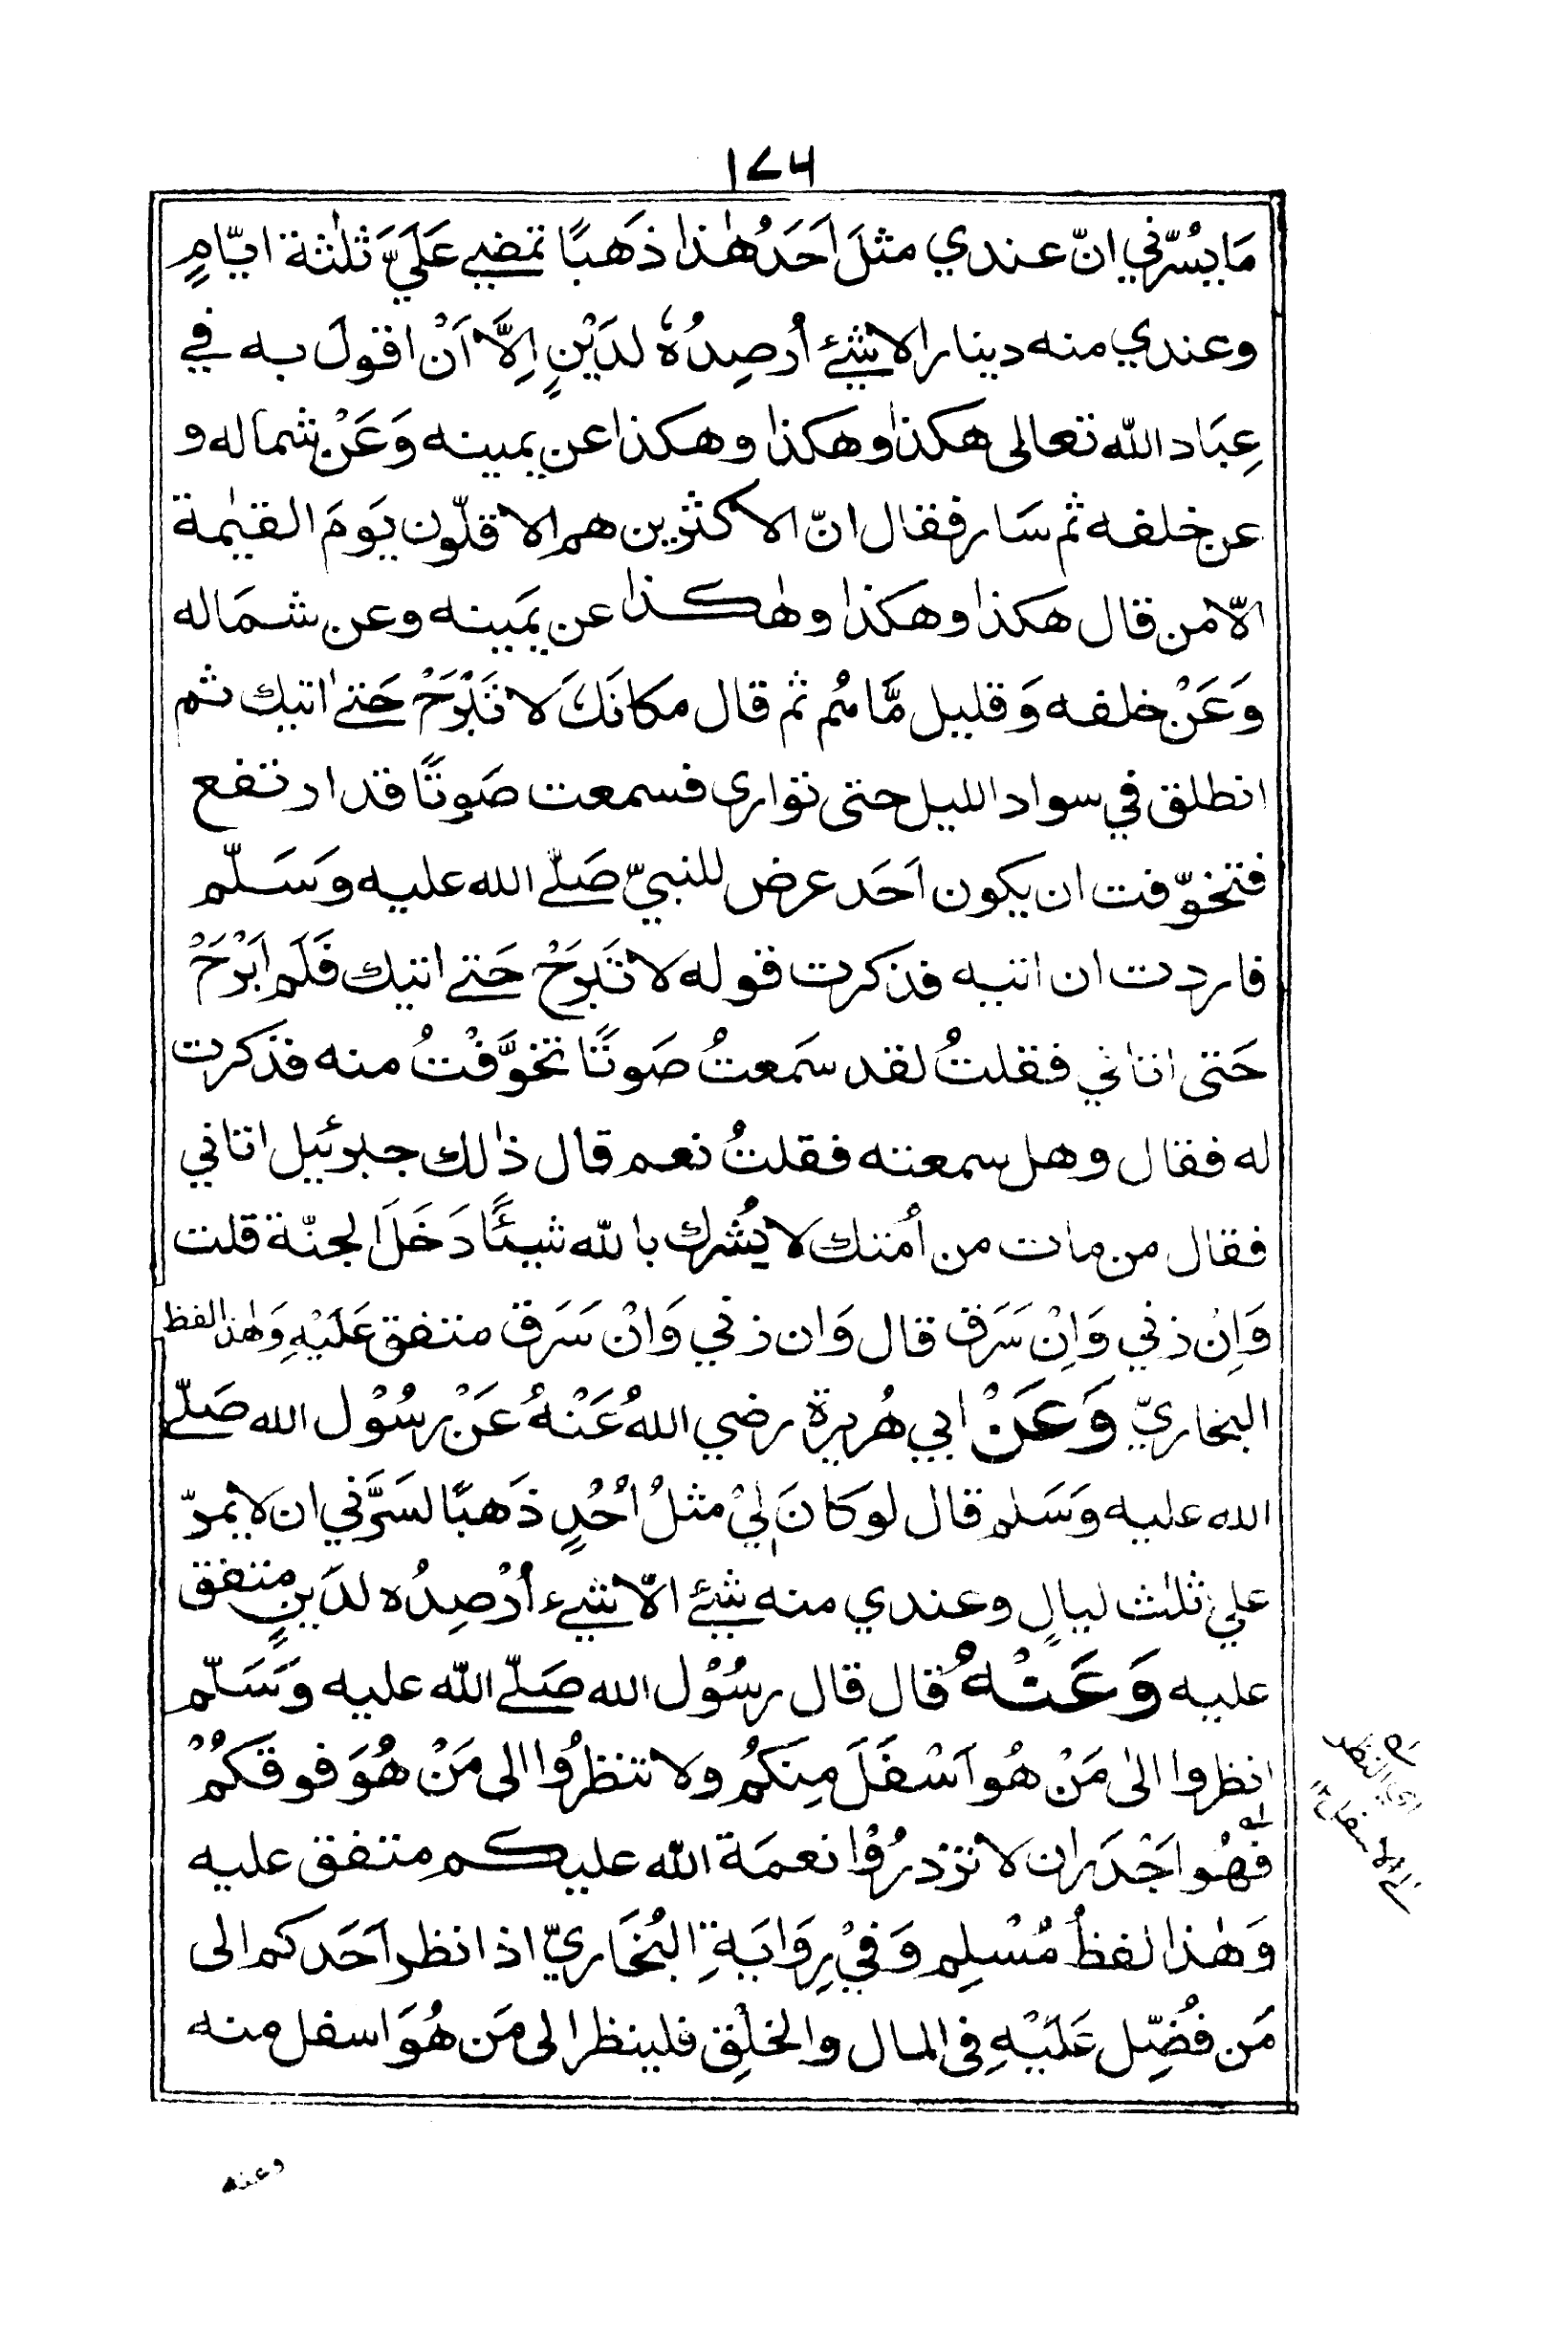 ١٧٦
مَا يسُرّني انّ عندي مثلَ اَحَدُ هٰذا ذَهبًا تمضي عَلَيَّ ثلٰثة ايّامٍ
وعندي منه دينار الا شئ اُرصِدُهٗ لدَيْنٍ اِلَّا اَنْ اقولَ به في
عِبَاد الله تعالى هكذا وهكذا وهكذا عن يمينه وَعَنْ شماله و
عن خلفه ثم سَار فقال انّ الاكثرين هم الاقلّون يَومَ القيٰمة
الّا من قال هكذا وهكذا وهٰكذا عن يَمينه وعن شمَاله
وَعَنْ خلفه وَقليل مَّا هُم ثم قال مكانَكَ لا تَبْرَحْ حَتىٰ اتيك ثم
انطلق في سواد الليل حتى توارى فسمعت صَوتًا قد ارتفع
فتخوّفت ان يكون اَحَد عرض للنبيّ صَلّے الله عليه وَسَلّم
فاردت ان اتيه فذكرت قوله لا تَبرَحْ حَتے اتيك فَلَم اَبْرَحْ
حَتى اتاني فقلتُ لقد سَمعتُ صَوتًا تخوَّفْتُ منه فذكرت
له فقال وهل سمعته فقلتُ نعم قال ذٰلك جبرئيل اتاني
فقال من مات من اُمتك لا يُشرك بالله شيئًا دَخَلَ الجنّة قلت
وَاِنْ زني وَاِنْ سَرَق قال وَان زني وَانْ سَرَق متفق عَلَيْهِ وَهٰذا لفظ
البخاريّ وَعَنْ ابي هُريرة رضي اللهُ عَنْهُ عَنْ رسُوْل الله صَلّے
الله عليه وَسَلم قال لو كانَ لِيْ مثلُ اُحُدٍ ذَهبًا لسَرَّني ان لا يمرّ
علي ثلٰث ليالٍ وعندي منه شئ الّا شيء اُرْصِدُه لدَينٍ متفق
عليه وَعَنْهُ قال قال رسُوْل الله صَلّے الله عليه وَسَلّم
انظروا الىٰ مَنْ هُو اَسْفَلَ مِنكُم ولا تنظرُوا الى مَنْ هُوَ فوقكُمْ
فَهُو اَجْدَر ان لا تزدرُوْا نعمَة الله عليكم متفق عليه
وَهٰذا لفظُ مُسْلِم وَفيْ رِوَايَةِ البُخَاريّ اذا نظر اَحَدكم الى
مَن فُضِّل عَلَيْهِ في المال والخلْقِ فلينظر الى مَن هُوَ اسفل منه
له اي النظر الى الاسفل ١٢
وعنه